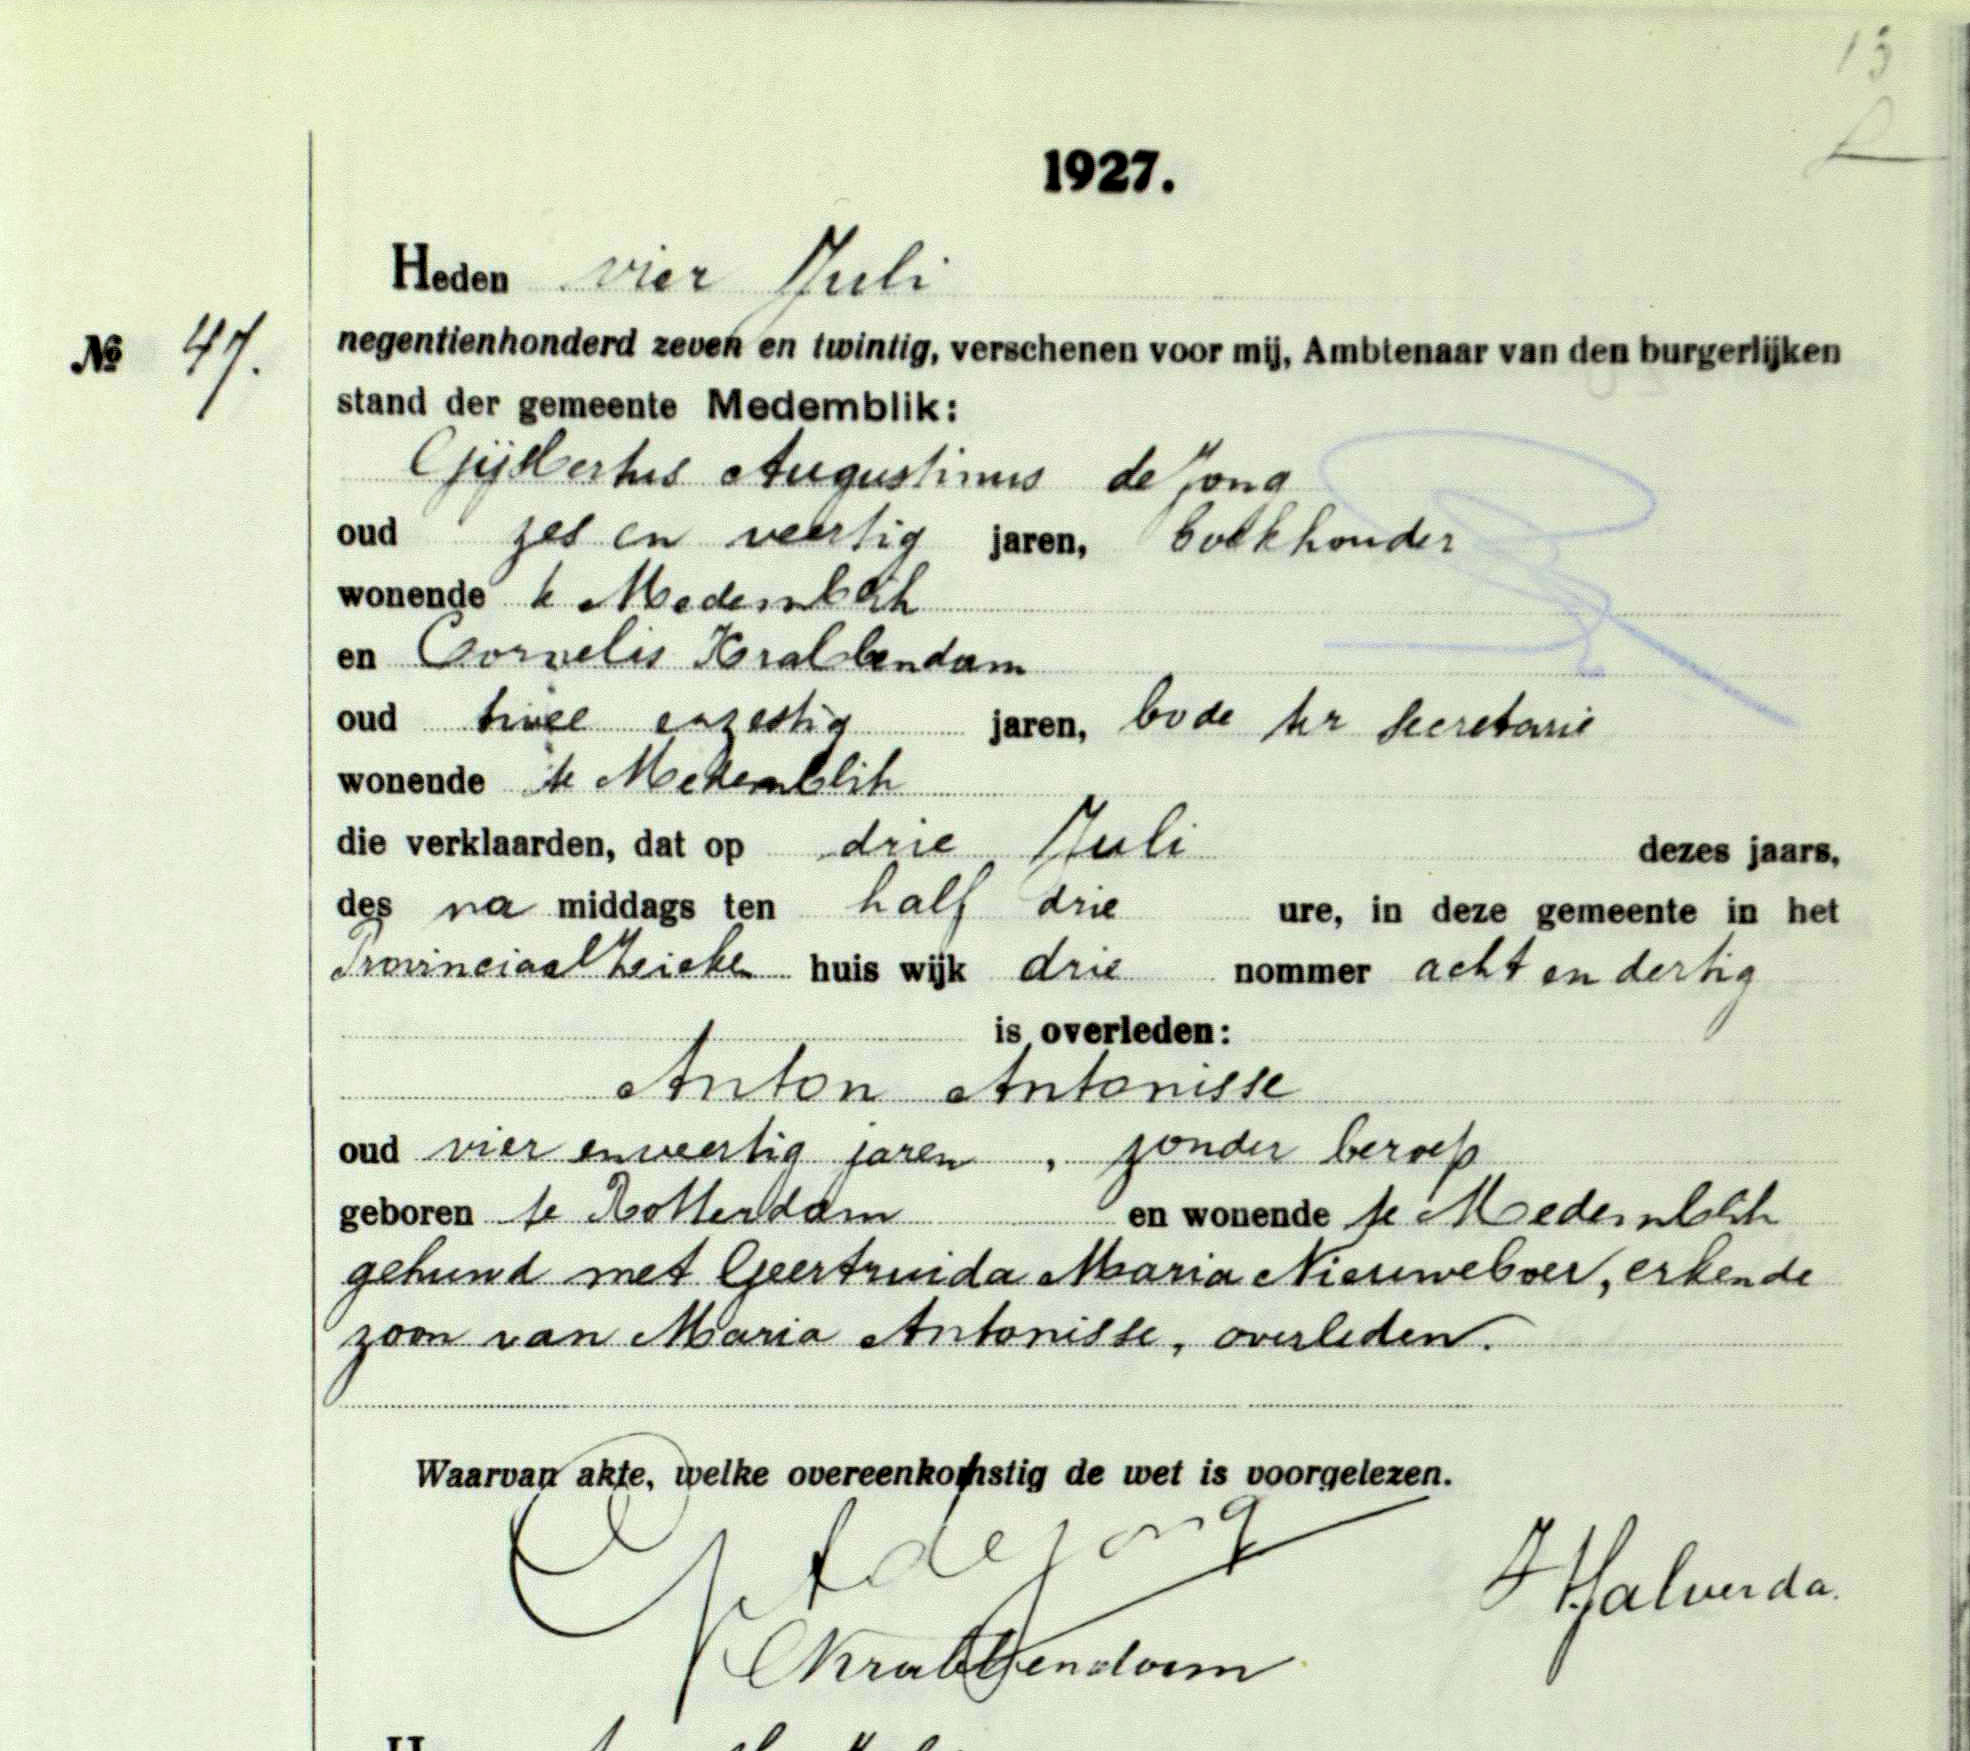 13
1927.
Heden vier Juli
№ 47.
negentienhonderd zeven en twintig, verschenen voor mij, Ambtenaar van den burgerlijken
stand der gemeente Medemblik:
Gijsbertus Augustinus de Jong
oud zes en veertig jaren, boekhouder
wonende te Medemblik
en Cornelis Krabbendam
oud twee en zestig jaren, bode ter secretarie
wonende te Medemblik
die verklaarden, dat op drie Juli dezes jaars,
des na middags ten half drie ure, in deze gemeente in het
Provinciaal Zieken huis wijk drie nommer acht en dertig
is overleden:
Anton Antonisse
oud vier en veertig jaren, zonder beroep
geboren te Rotterdam en wonende te Medemblik
gehuwd met Geertruida Maria Nieuweboer, erkende
zoon van Maria Antonisse, overleden.
Waarvan akte, welke overeenkomstig de wet is voorgelezen.
G A de Jong
Halverda.
CKrabbendam